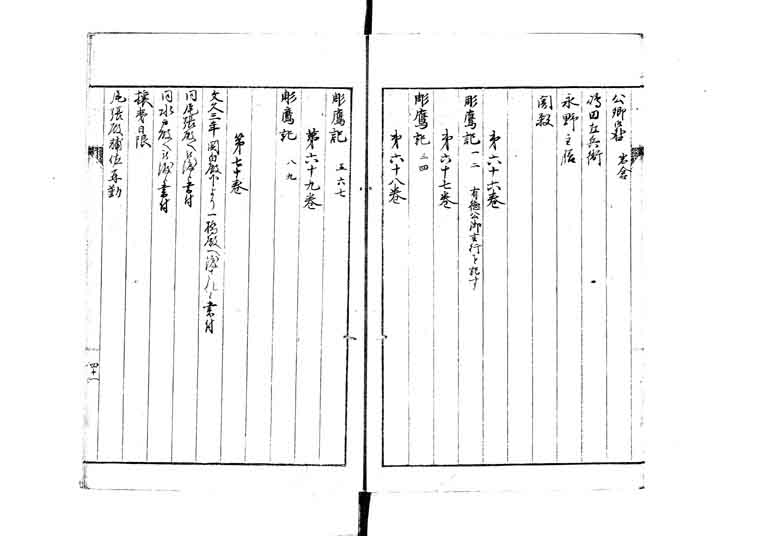 公卿 岩倉
嶋田左兵衛
永野主膳
関殺
第六十六巻
彫鷹記 一二 有徳公御言行を記す
第六十七巻
彫鷹記 三四
第六十八巻
彫鷹記 五六七
第六十九巻
彫鷹記 八九
第七十巻
文久三年関白殿下より一橋殿へ渡 書付
同尾張殿へ 渡 書付
同水戸殿へ 渡 書付
攘夷日限
尾張殿補佐再勤
四十一